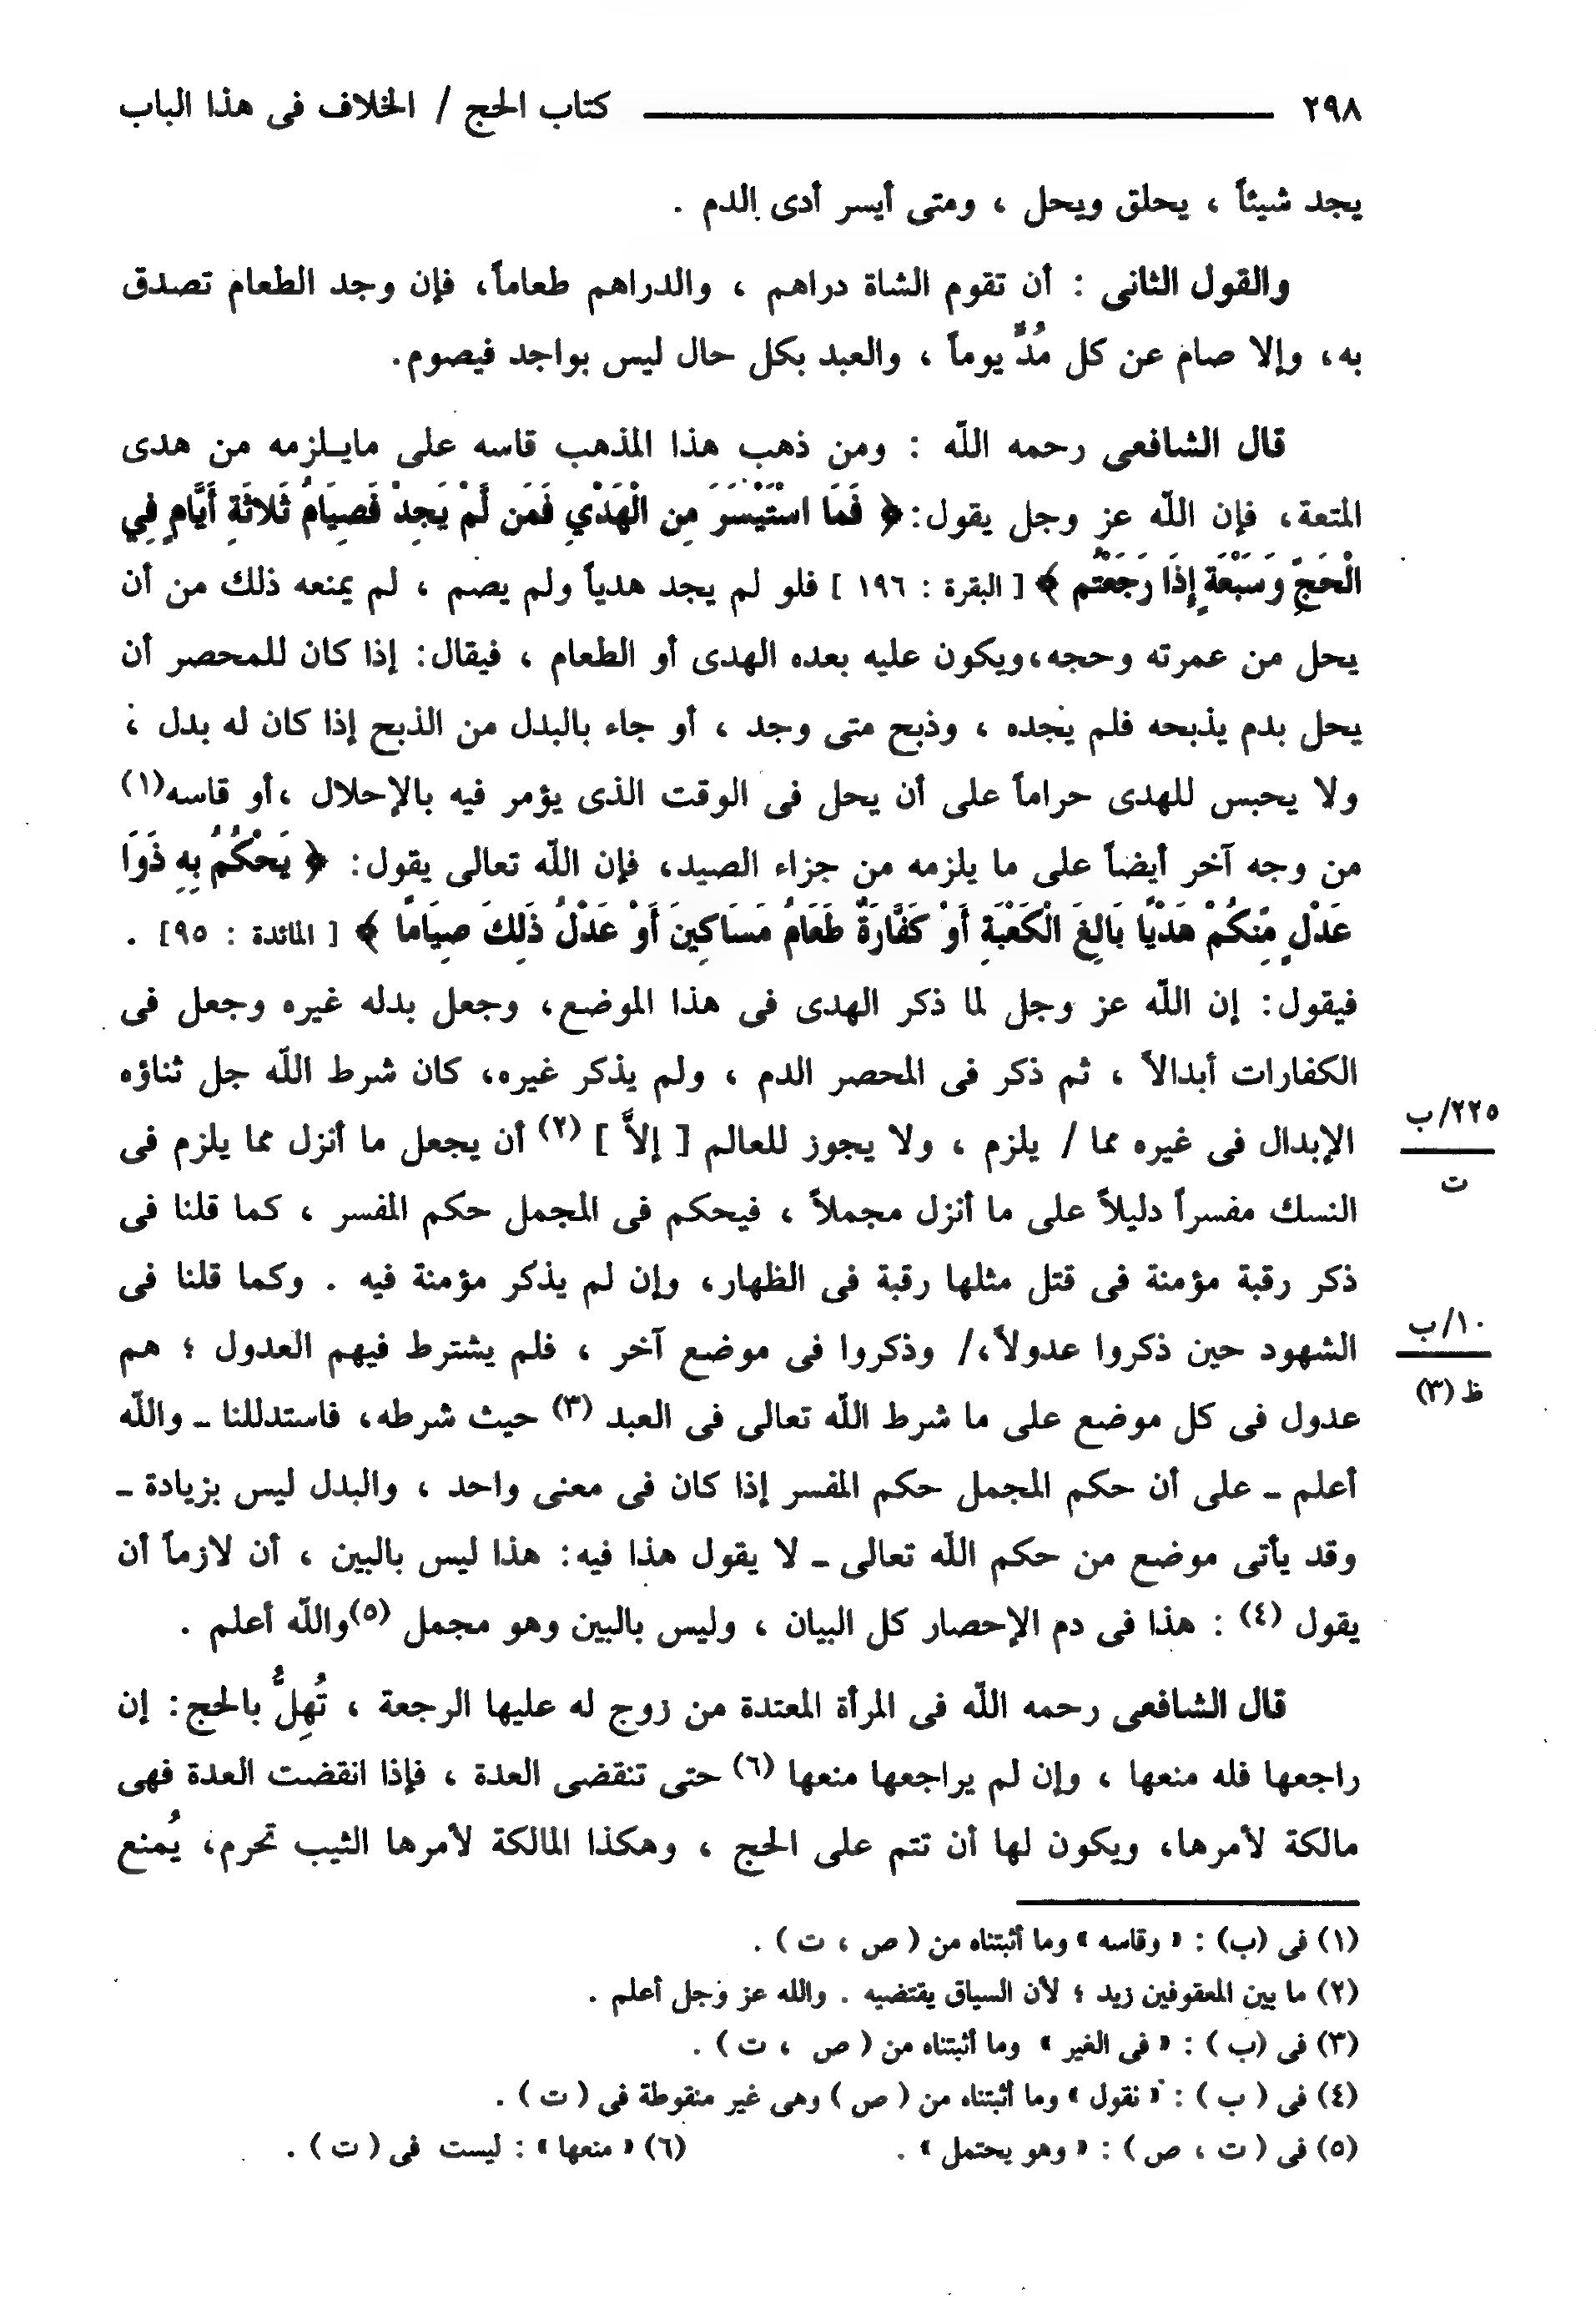 ٢٩٨ كتاب الحج / الخلاف فى هذا الباب
يجد شيئاً ، يحلق ويحل ، ومتى أيسر أدى الدم .
والقول الثانى : أن تقوم الشاة دراهم ، والدراهم طعاماً، فإن وجد الطعام تصدق
به، وإلا صام عن كل مُدٍّ يوماً ، والعبد بكل حال ليس بواجد فيصوم.
قال الشافعى رحمه اللّه : ومن ذهب هذا المذهب قاسه على مايلزمه من هدى
المتعة، فإن اللّه عز وجل يقول: ﴿ فَمَا اسْتَيْسَرَ مِنَ الْهَدْيِ فَمَن لَّمْ يَجِدْ فَصِيَامُ ثَلاثَةِ أَيَّامٍ فِي
الْحَجِّ وَسَبْعَةٍ إِذَا رَجَعْتُم ﴾ [ البقرة : ١٩٦ ] فلو لم يجد هدياً ولم يصم ، لم يمنعه ذلك من أن
يحل من عمرته وحجه،ويكون عليه بعده الهدى أو الطعام ، فيقال: إذا كان للمحصر أن
يحل بدم يذبحه فلم يجده ، وذبح متى وجد ، أو جاء بالبدل من الذبح إذا كان له بدل ،
ولا يحبس للهدى حراماً على أن يحل فى الوقت الذى يؤمر فيه بالإحلال ،أو قاسه(١)
من وجه آخر أيضاً على ما يلزمه من جزاء الصيد، فإن اللّه تعالى يقول: ﴿ يَحْكُمُ بِهِ ذَوَا
عَدْلٍ مِّنكُمْ هَدْيًا بَالِغَ الْكَعْبَةِ أَوْ كَفَّارَةٌ طَعَامُ مَسَاكِينَ أَوْ عَدْلُ ذَلِكَ صِيَامًا ﴾ [ المائدة : ٩٥] .
فيقول: إن اللّه عز وجل لما ذكر الهدى فى هذا الموضع، وجعل بدله غيره وجعل فى
الكفارات أبدالاً ، ثم ذكر فى المحصر الدم ، ولم يذكر غيره، كان شرط اللّه جل ثناؤه
٢٢٥/ب
الإبدال فى غيره مما / يلزم ، ولا يجوز للعالم [ إلاَّ ] (٢) أن يجعل ما أنزل مما يلزم فى
ت
النسك مفسراً دليلاً على ما أنزل مجملاً ، فيحكم فى المجمل حكم المفسر ، كما قلنا فى
ذكر رقبة مؤمنة فى قتل مثلها رقبة فى الظهار، وإن لم يذكر مؤمنة فيه . وكما قلنا فى
١٠/ب
الشهود حين ذكروا عدولاً،/ وذكروا فى موضع آخر ، فلم يشترط فيهم العدول ؛ هم
ظ (٣)
عدول فى كل موضع على ما شرط اللّه تعالى فى العبد (٣) حيث شرطه، فاستدللنا ـ واللّه
أعلم ـ على أن حكم المجمل حكم المفسر إذا كان فى معنى واحد ، والبدل ليس بزيادة ـ
وقد يأتى موضع من حكم اللّه تعالى ـ لا يقول هذا فيه: هذا ليس بالبين ، أن لازماً أن
يقول (٤) : هذا فى دم الإحصار كل البيان ، وليس بالبين وهو مجمل (٥)واللّه أعلم .
قال الشافعى رحمه اللّه فى المرأة المعتدة من زوج له عليها الرجعة ، تُهِلُّ بالحج: إن
راجعها فله منعها ، وإن لم يراجعها منعها (٦) حتى تنقضى العدة ، فإذا انقضت العدة فهى
مالكة لأمرها، ويكون لها أن تتم على الحج ، وهكذا المالكة لأمرها الثيب تحرم، يُمنع
(١) فى (ب) : « وقاسه » وما أثبتناه من ( ص ، ت ) .
(٢) ما بين المعقوفين زيد ؛ لأن السياق يقتضيه . والله عز وجل أعلم .
(٣) فى (ب ) : « فى الغير » وما أثبتناه من ( ص ، ت ) .
(٤) فى ( ب ) : « نقول » وما أثبتناه من ( ص ) وهى غير منقوطة فى ( ت ) .
(٥) فى ( ت ، ص ) : « وهو يحتمل » . (٦) « منعها » : ليست فى ( ت ) .